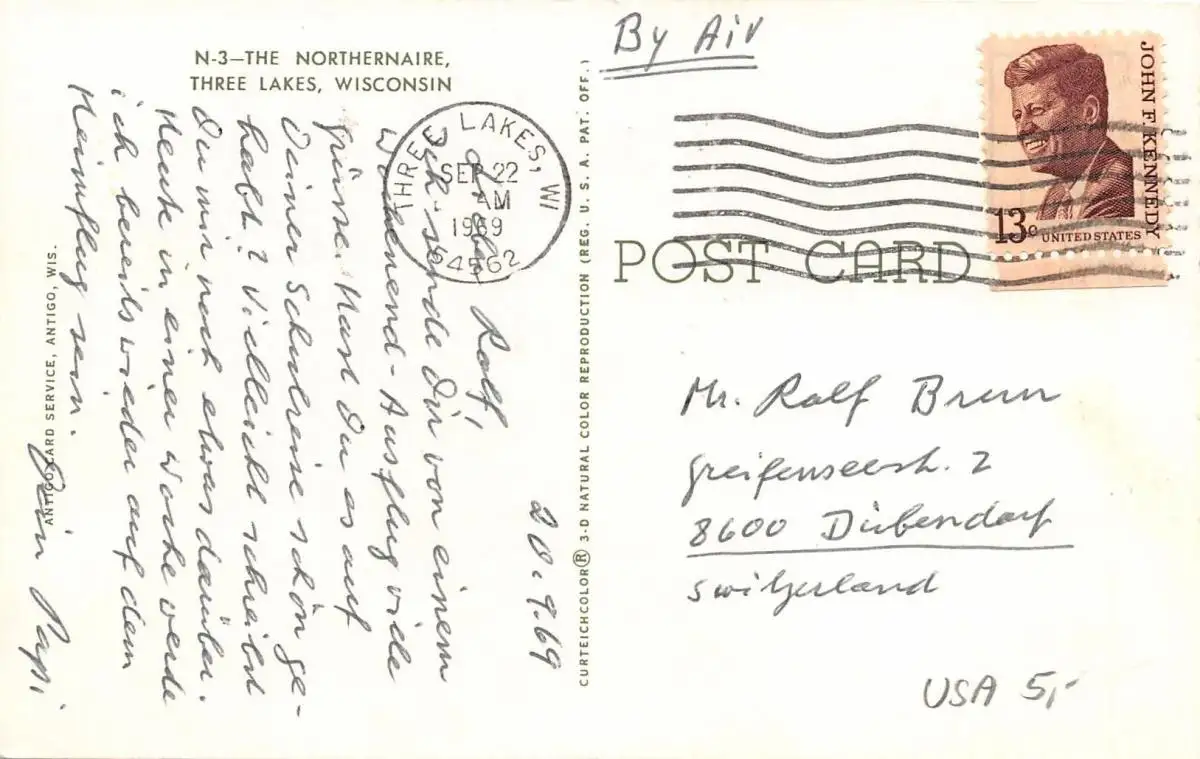 N-3—THE NORTHERNAIRE,
THREE LAKES, WISCONSIN
20.9.69
Lieber Ralf,
Ich sende Dir von einem
Wochenend-Ausflug viele
Grüsse. Hast Du es auf
Deiner Schulreise schön ge-
habt? Vielleicht schreibst
Du mir noch etwas darüber.
Heute in einer Woche werde
ich bereits wieder auf dem
Heimflug sein.
Dein Papi
ANTIGO CARD SERVICE, ANTIGO, WIS.
CURTEICHCOLOR® 3-D NATURAL COLOR REPRODUCTION (REG. U. S. A. PAT. OFF.)
THREE LAKES, WI
SEP 22
AM
1969
54562
By Air
JOHN F. KENNEDY
13c UNITED STATES
POST CARD
Mr. Ralf Brun
Greifenseestr. 2
8600 Dübendorf
Switzerland
USA 5,-